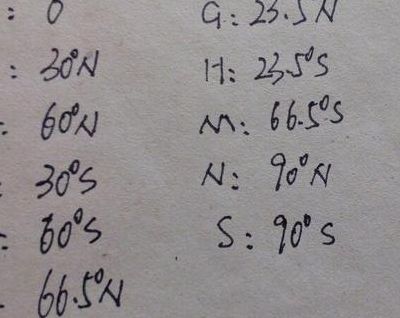 : 0 G: 23.5N
: 30°N H: 23.5°S
: 60°N M: 66.5°S
: 30°S N: 90°N
: 60°S S: 90°S
66.5°N